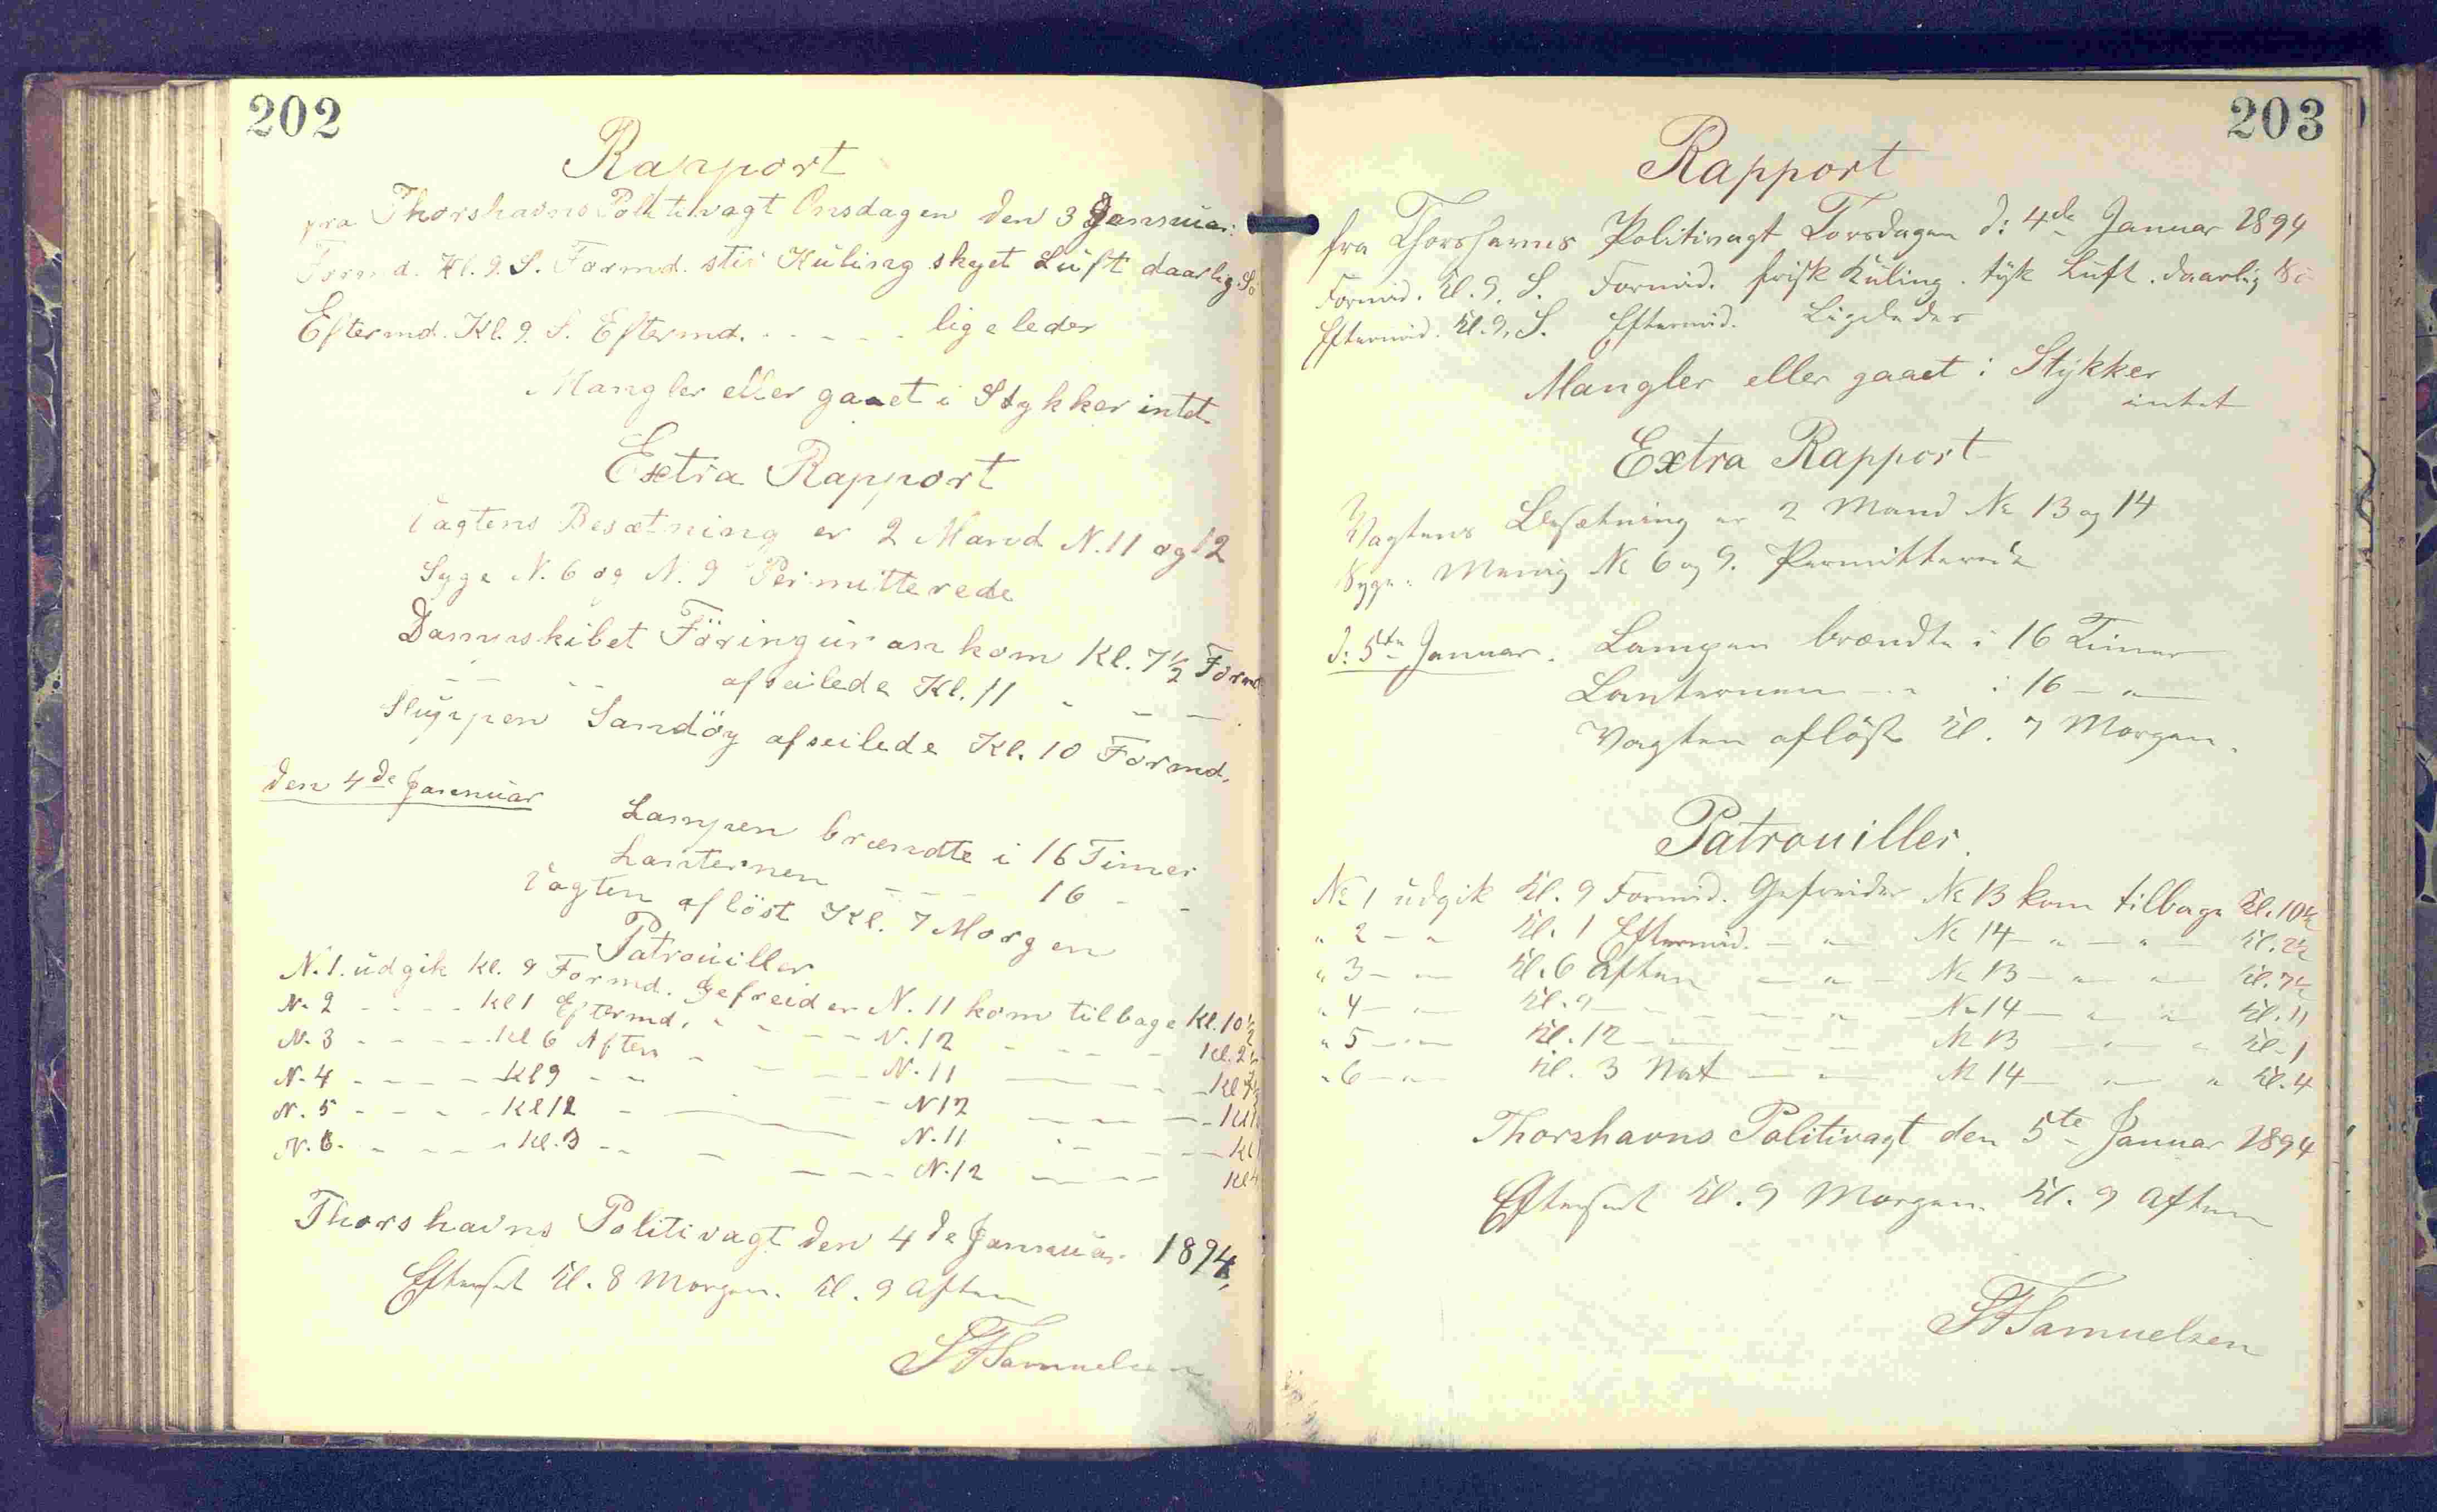 202
Rapport
fra Thorshavns Politivagt Onsdagen den 3 Januar
Formd. Kl. 9. S. Formd. stiv Kuling skyet Luft daarlig Sö
Eftermd. Kl. 9. S. Eftermd. - - - - - ligeledes
Mangler eller gaaet i Stykker intet
Extra Rapport
Vagtens Besætning er 2 Mand N. 11 og 12
Syge N. 6 og N. 9 Permitterede
Dampskibet Föringur ankom Kl. 7½ Form
- - - - afseilede Kl. 11 - - -
Sluppen Sandöy afseilede Kl. 10 Formd.
den 4de Januar
Lampen brændte i 16 Timer
Lanternen - - - 16 - -
Vagten aflöst Kl. 7 Morgen
Patrouiller
N. 1. udgik Kl. 9 Formd. Gefreider N. 11 kom tilbage Kl. 10½
N. 2 - - - - Kl 1 Eftermd. - - - - N. 12 - - - - Kl. 2½
N. 3 - - - - Kl 6 Aften - - - - N. 11 - - - - Kl 7½
N. 4 - - - - Kl 9 - - - - N 12 - - - - Kl 11
N. 5 - - - - Kl 12 - - - - N. 11 - - - - Kl 1
N. 6. - - - - Kl. 3 - - - - N. 12 - - - - Kl 4
Thorshavns Politivagt den 4de Januar 1894,
Efterset Kl. 8 Morgen. Kl. 9 Aften
Samuelsen
203
Rapport
fra Thorshavns Politivagt Torsdagen d: 4de Januar 1894
Formid. Kl. 9. S. Formid. frisk Kuling. tyk Luft. daarlig Sö
Eftermid. Kl. 9. S. Eftermid. Ligeledes
Mangler eller gaaet i Stykker
intet
Extra Rapport
Vagtens Besætning er 2 Mand No 13 og 14
Syge: Menig No 6 og 9. Permitterede
d: 5te Januar. Lampen brændte i 16 Timer
Lanternen - " i 16 - " -
Vagten aflöst Kl. 7 Morgen.
Patrouiller.
No 1 udgik Kl. 9 Formid. Gefreider No 13 kom tilbage Kl. 10½
" 2 - " Kl. 1 Eftermid. - " - No 14 - " - " - Kl. 2½
" 3 - " - Kl. 6 Aften - " - No 13 - " - " - Kl. 7½
" 4 - " - Kl. 9 - - - " - No 14 - " - " - Kl. 11
" 5 - " - Kl. 12 - - - No 13 - " - " Kl. 1
" 6 - " - Kl. 3 Nat - " - No 14 - " - " Kl. 4
Thorshavns Politivagt den 5te Januar 1894
Efterset Kl. 9 Morgen. Kl. 9 Aften
Samuelsen